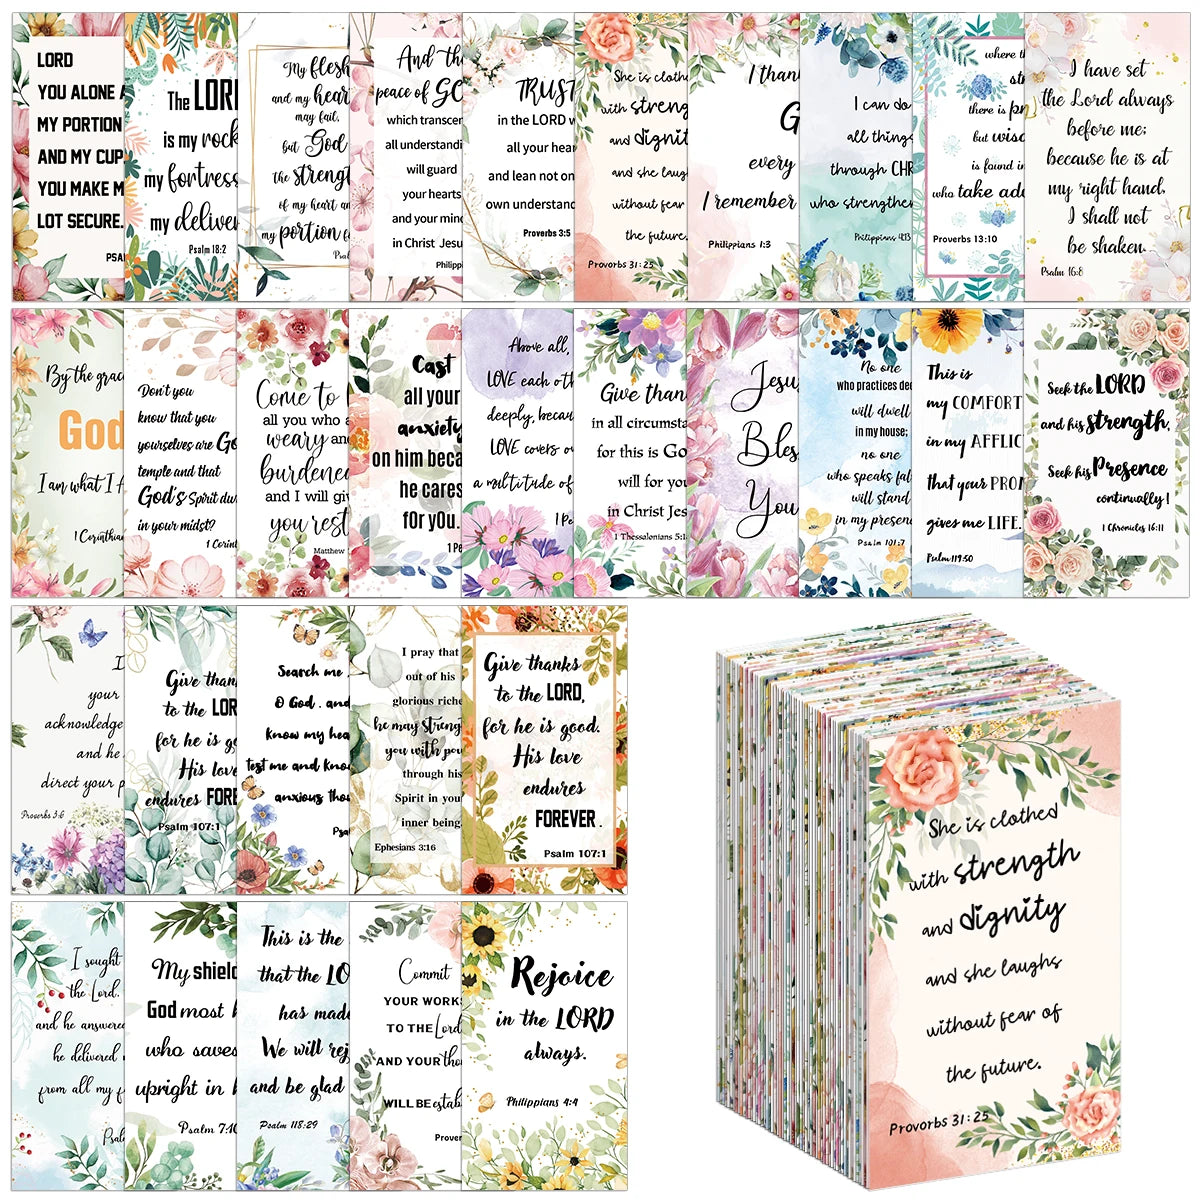 LORD
YOU ALONE
MY PORTION
AND MY CUP
YOU MAKE M
LOT SECURE.
PSA
The LORD
is my rock
my fortress
my deliver
Psalm 18:2
My flesh
and my hear
may fail,
but God
the strengt
of my heart an
my portion
Psal
And the
peace of GO
which transcen
all understandi
will guard
your hearts
and your mind
in Christ Jesu
Philippi
TRUST
in the LORD w
all your hear
and lean not on
own understand
Proverbs 3:5
She is cloth
with streng
and dignit
and she laug
without fear
the future.
Proverbs 31:25
I than
G
every
I remember
Philippians 1:3
I can do
all things
through CHR
who strengthen
Philippians 4:13
where th
st
there is pr
but wisd
is found i
who take adv
Proverbs 13:10
I have set
the Lord always
before me;
because he is at
my right hand,
I shall not
be shaken.
Psalm 16:8
By the grac
God
I am what I A
1 Corinthia
Don't you
know that you
yourselves are Go
temple and that
God's Spirit dw
in your midst?
1 Corint
Come to
all you who a
weary and
burdened
and I will giv
you rest
Matthew
Cast
all your
anxiety
on him beca
he cares
for you.
1 Pe
Above all,
LOVE each oth
deeply, becau
LOVE covers o
a multitude of
1 Pe
Give than
in all circumsta
for this is Go
will for yo
in Christ Jes
1 Thessalonians 5:1
Jesu
Bles
You
No one
who practices dec
will dwell
in my house;
no one
who speaks fal
will stand
in my presenc
Psalm 101:7
This is
my COMFORT
in my AFFLIC
that your PROM
gives me LIFE.
Psalm 119:50
Seek the LORD
and his strength,
Seek his Presence
continually!
1 Chronicles 16:11
I
your
acknowledge
and he
direct your p
Proverbs 3:6
Give than
to the LOR
for he is go
His love
endures FORE
Psalm 107:1
Search me
O God, and
know my hea
test me and know
anxious thou
Psa
I pray that
out of his
glorious riche
he may streng
you with pow
through his
Spirit in you
inner being,
Ephesians 3:16
Give thanks
to the LORD,
for he is good.
His love
endures
FOREVER.
Psalm 107:1
I sought
the Lord,
and he answere
he delivered
from all my f
Psal
My shield
God most h
who saves
upright in h
Psalm 7:10
This is the
that the LO
has made
We will rej
and be glad
Psalm 118:29
Commit
YOUR WORKS
TO THE Lord
AND YOUR tho
WILL BE estab
Prover
Rejoice
in the LORD
always.
Philippians 4:4
She is clothed
with strength
and dignity
and she laughs
without fear of
the future.
Proverbs 31:25